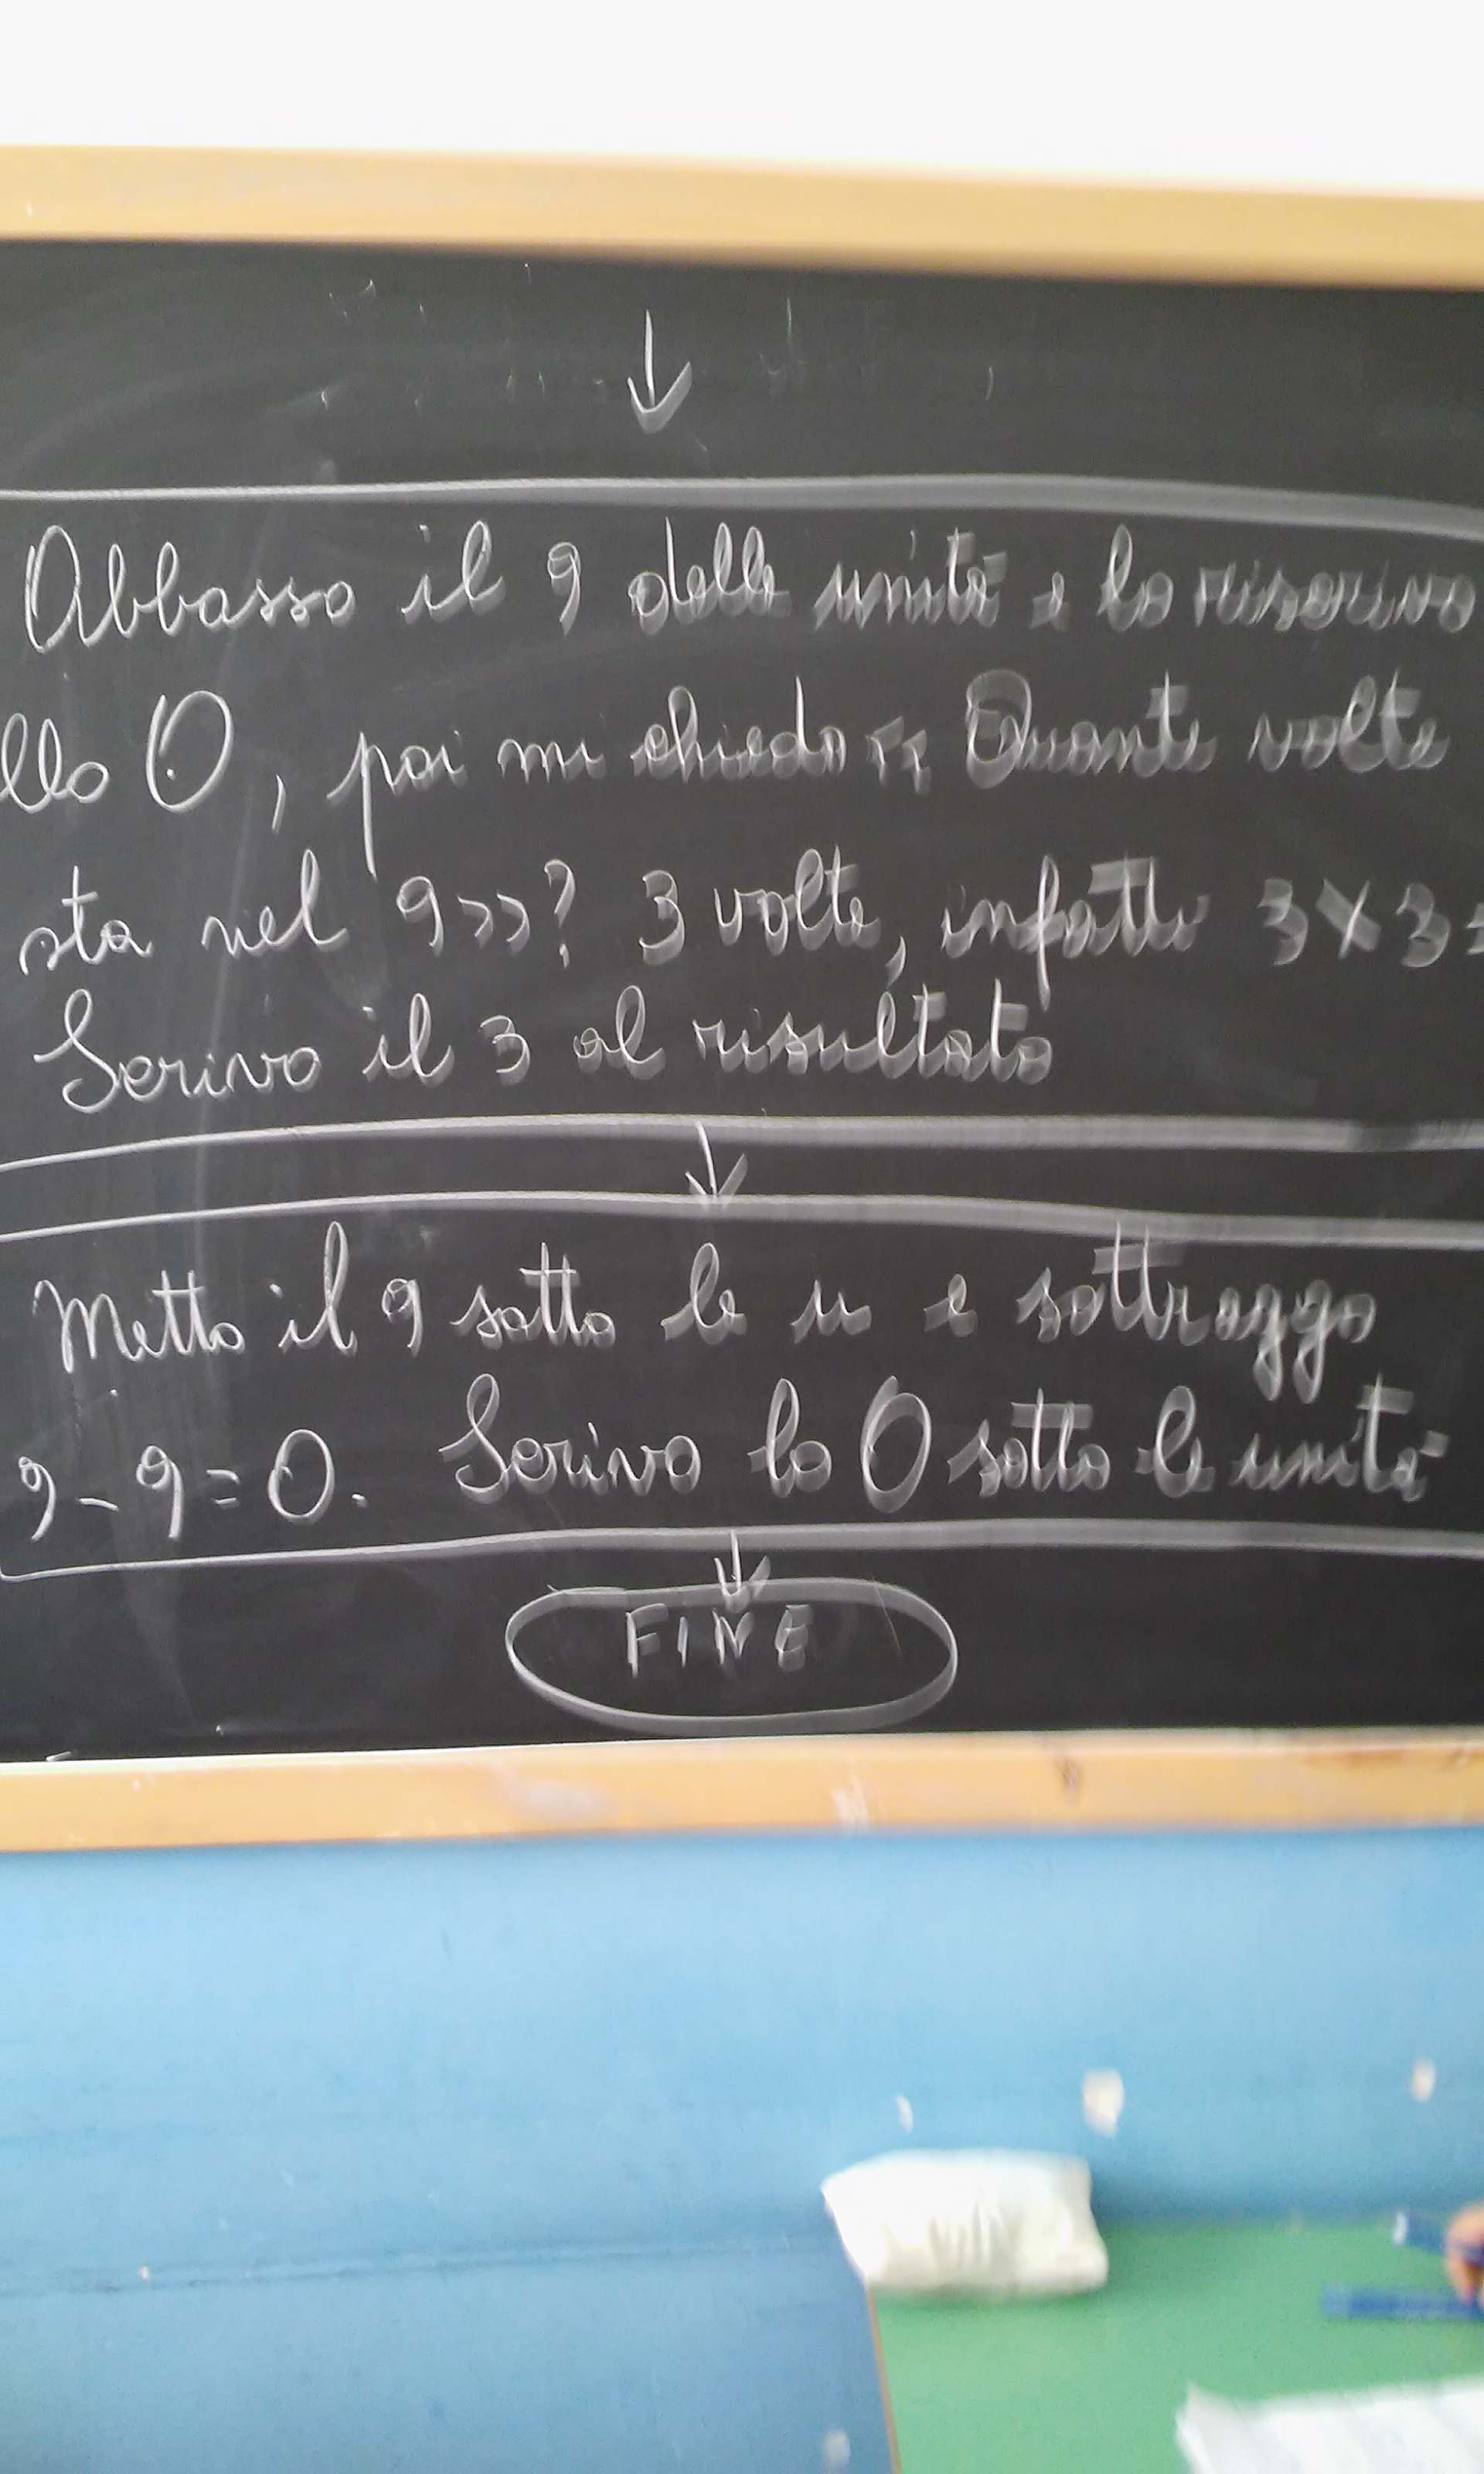 Abbasso il 9 delle unità e lo riscrivo
llo 0, poi mi chiedo << Quante volte
sta nel 9>>? 3 volte, infatti 3×3=
Scrivo il 3 al risultato
Metto il 9 sotto le u e sottraggo
9-9=0. Scrivo lo 0 sotto le unità
FINE